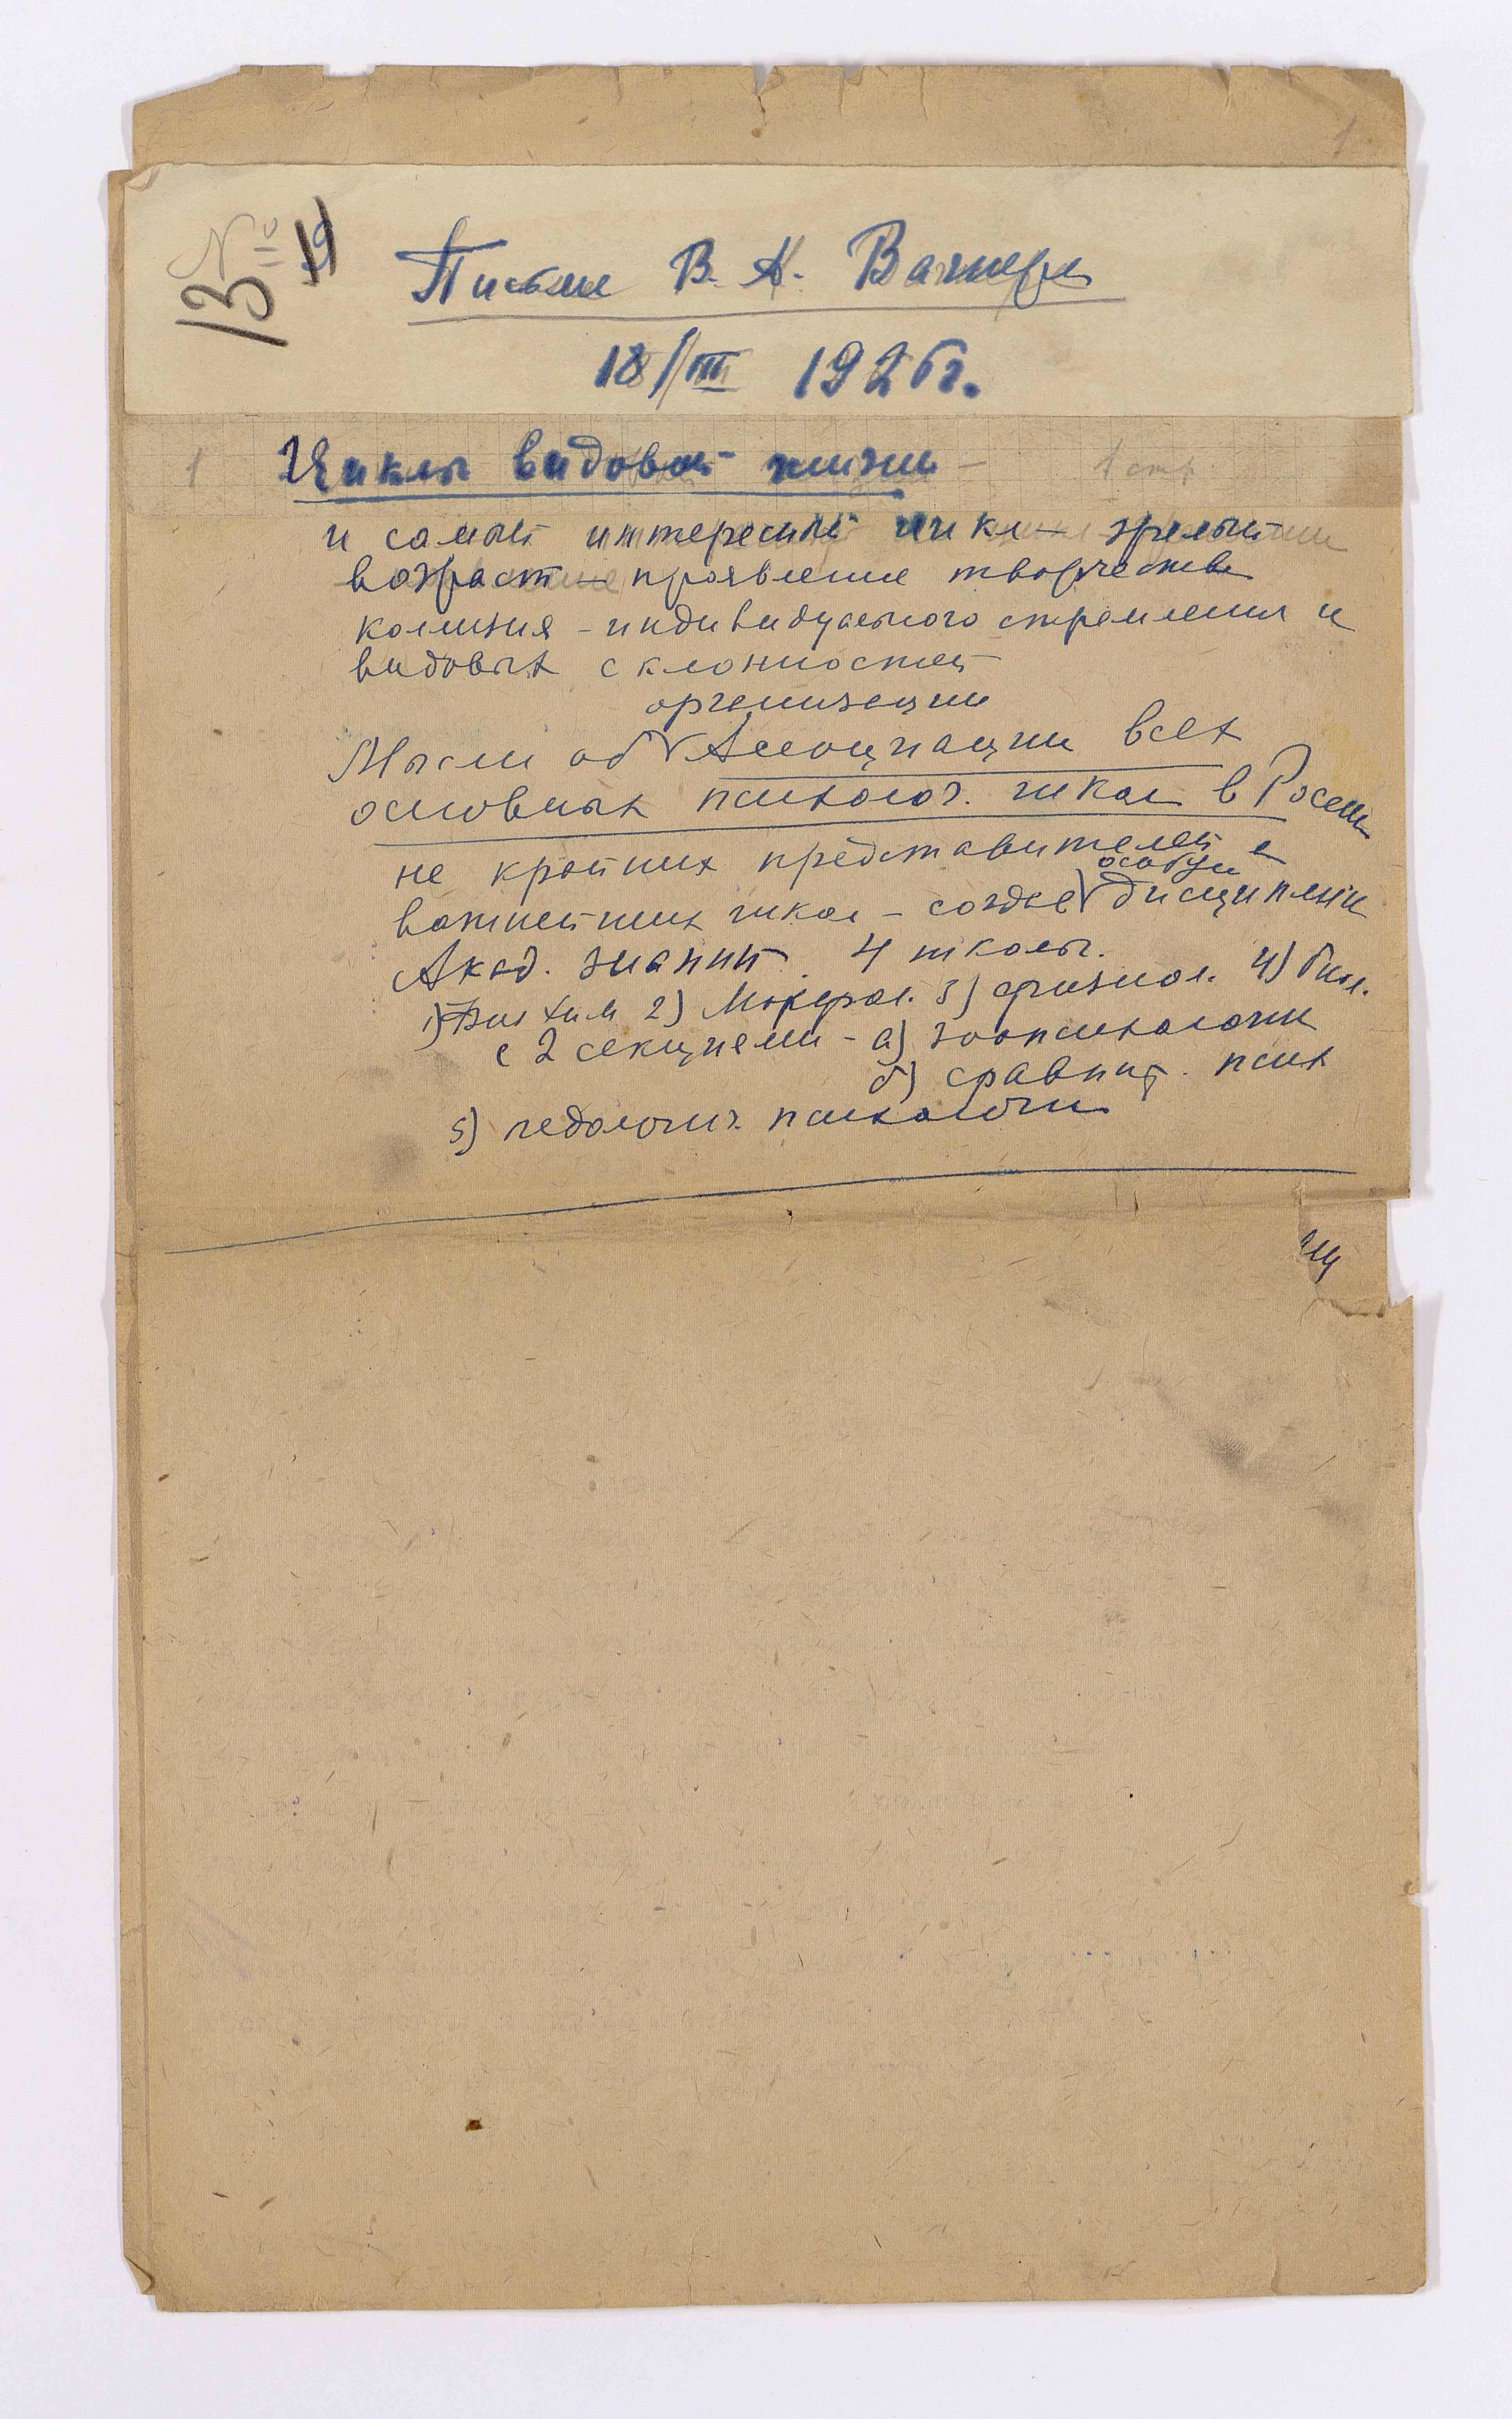 1
№ 19
13
Письма В. А. Вагнера
18/III 1926г.
1 Циклы видовой жизни – 1 стр.
и самый интересный цикл – зрелый
возраст – проявление творчества
колизия – индивидуального стремления и
видовых склонностей
организации
Мысли об V Ассоциации всех
основных психолог. школ в России
не крайних представителей а
особую
важнейших школ – создав V дисциплин
Акад. знаний. 4 школы.
1) Биохим 2) Морфол. 3) физиол. 4) биол.
с 2 секциями – а) зоопсихологии
б) сравнит. псих
5) педологич. психологии